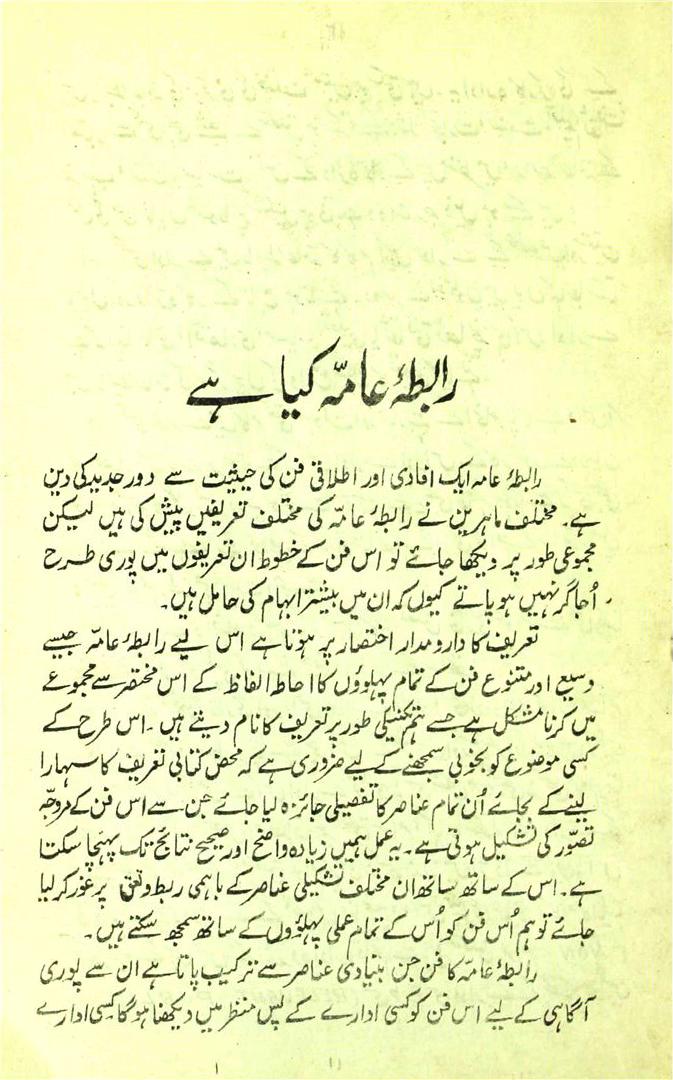 رابطۂ عامّہ کیا ہے
رابطۂ عامہ ایک افادی اور اطلاقی فن کی حیثیت سے دور جدید کی دین
ہے۔ مختلف ماہرین نے رابطۂ عامّہ کی مختلف تعریفیں پیش کی ہیں لیکن
مجموعی طور پر دیکھا جائے تو اس فن کے خطوط ان تعریفوں میں پوری طرح
اُجاگر نہیں ہو پاتے کیوں کہ ان میں بیشتر ابہام کی حامل ہیں۔
تعریف کا دارومدار اختصار پر ہوتا ہے اس لیے رابطۂ عامّہ جیسے
وسیع اور متنوع فن کے تمام پہلوؤں کا احاطہ الفاظ کے اس مختصر سے مجموعے
میں کرنا مشکل ہے جسے ہم تکنیکی طور پر تعریف کا نام دیتے ہیں۔ اس طرح کے
کسی موضوع کو بخوبی سمجھنے کے لیے ضروری ہے کہ محض کتابی تعریف کا سہارا
لینے کے بجائے اُن تمام عناصر کا تفصیلی جائزہ لیا جائے جن سے اس فن کے مروجّہ
تصوّر کی تشکیل ہوتی ہے۔ یہ عمل ہمیں زیادہ واضح اور صحیح نتائج تک پہنچا سکتا
ہے۔ اس کے ساتھ ساتھ ان مختلف تشکیلی عناصر کے باہمی ربط و تعلق پر غور کر لیا
جائے تو ہم اُس فن کو اُس کے تمام عملی پہلوؤں کے ساتھ سمجھ سکتے ہیں۔
رابطۂ عامّہ کا فن جن بنیادی عناصر سے ترکیب پاتا ہے ان سے پوری
آگاہی کے لیے اس فن کو کسی ادارے کے پس منظر میں دیکھنا ہوگا۔ کسی ادارے